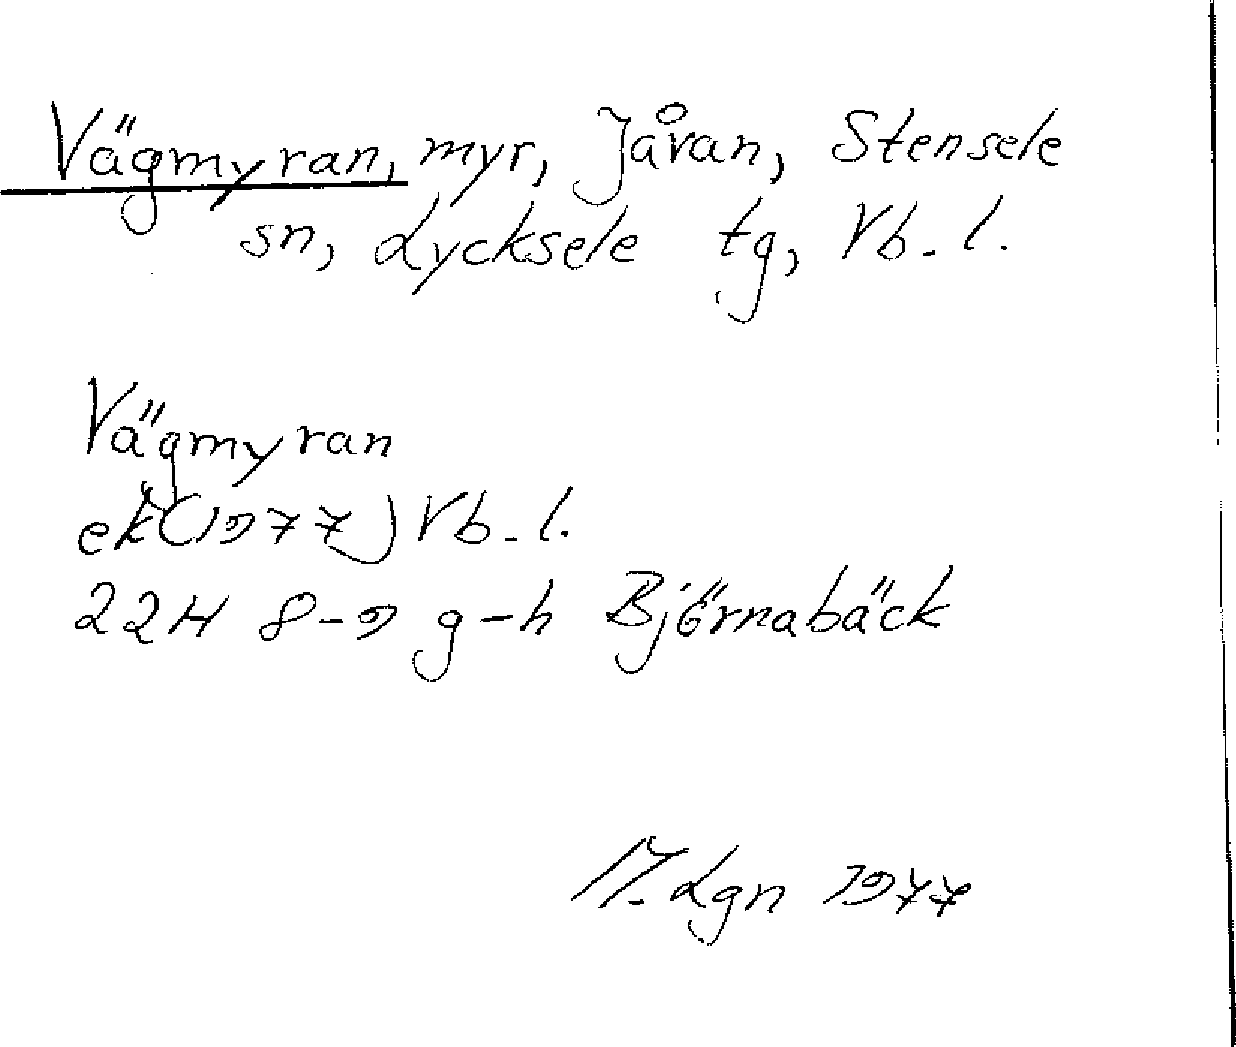 Vägmyran, myr, Jåvan, Stensele
sn, Lycksele tg, Vb. l.
Vägmyran
ek (1977) Vb. l.
22H 8-9 g-h Björnabäck
M. Lgn 1977